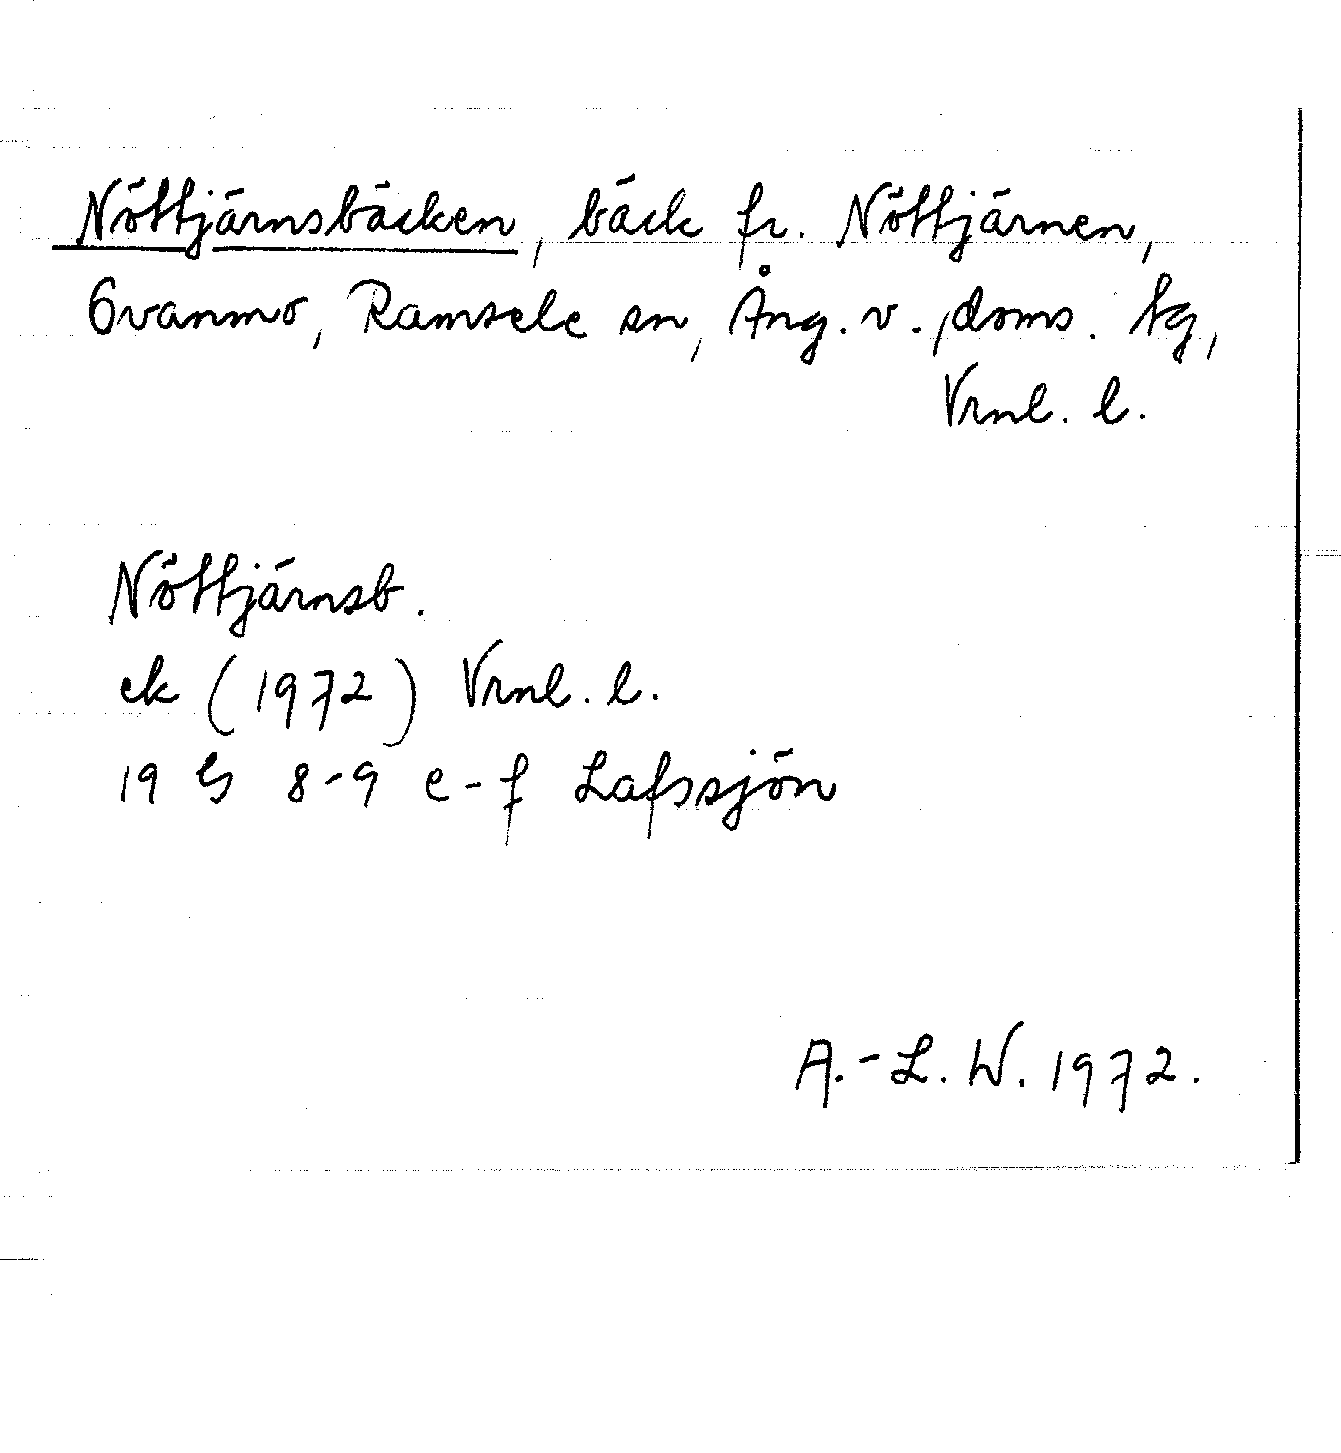 Nöttjärnsbäcken, bäck fr. Nöttjärnen,
Ovanmo, Ramsele sn, Ång. v., doms. tg,
Vrnl. l.
Nöttjärnsb.
ek (1972) Vrnl. l.
19 G 8-9 e-f Lafssjön
A.-L. W. 1972.